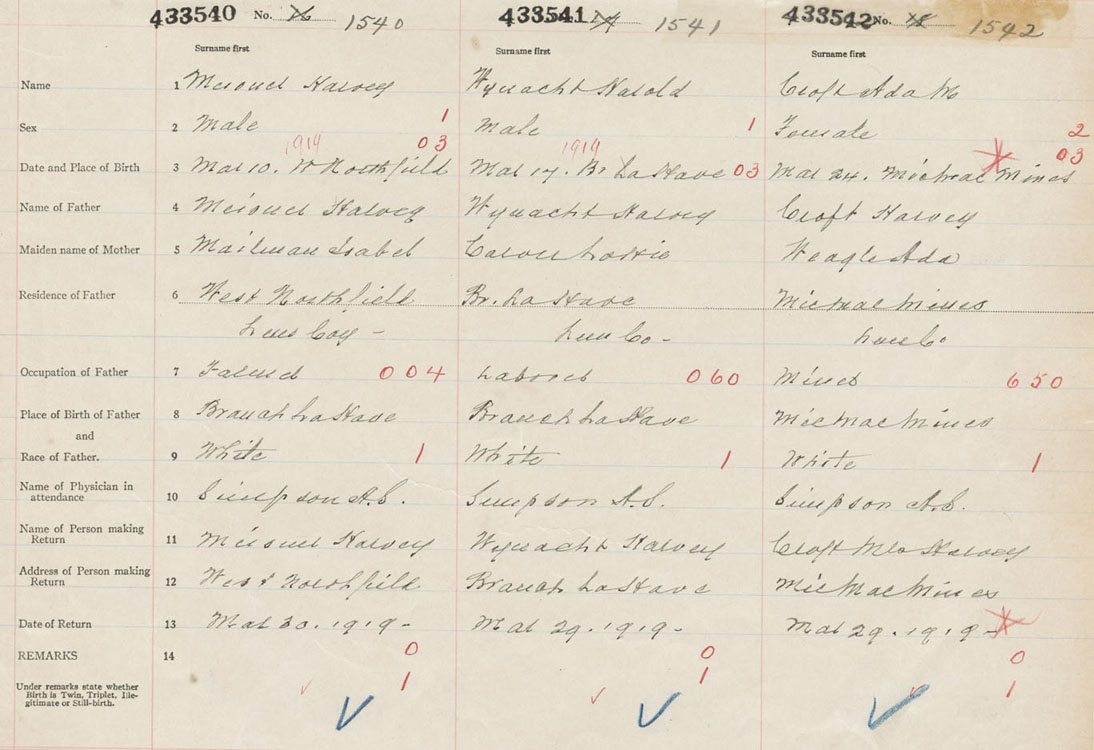 433540 No. 16 1540 433541 17 1541 433542 No. 18 1542
Surname first Surname first Surname first
Name 1 Meisner Harvey Wynacht Harold Croft Ada M
Sex 2 Male 1 Male 1 Female 2
1919 03 1919 03
Date and Place of Birth 3 Mar 10. W Northfield Mar 17. Br LaHave 03 Mar 24. Micmac Mines
Name of Father 4 Meisner Harvey Wynacht Harvey Croft Harvey
Maiden name of Mother 5 Mailman Isabel Carver Lottie Weagle Ada
Residence of Father 6 West Northfield Br. LaHave Micmac Mines
Lun Coy - Lun Co - Lun Co
Occupation of Father 7 Farmer 004 Laborer 060 Miner 650
Place of Birth of Father 8 Branch LaHave Branch LaHave Micmac Mines
and
Race of Father. 9 White 1 White 1 White 1
Name of Physician in
attendance 10 Simpson A.C. Simpson A.C. Simpson A.C.
Name of Person making
Return 11 Meisner Harvey Wynacht Harvey Croft Mrs Harvey
Address of Person making
Return 12 West Northfield Branch LaHave Micmac Mines
Date of Return 13 Mar 30. 1919- Mar 29. 1919- Mar 29. 1919-
REMARKS 14 0 0 0
Under remarks state whether
Birth is Twin, Triplet, Ille-
gitimate or Still-birth. 1 1 1